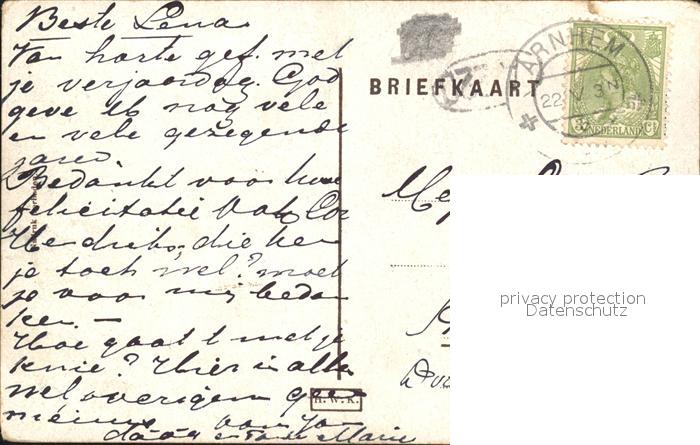 Beste Lena
Van harte gef. met
je verjaardag. God
geve U nog vele
en vele gezegende
jaren
Bedankt voor
felicitatie
die ken
je toch wel? moet
je voor mij bedan
ken. —
Hoe gaat t met je
knie? Hier is alles
wel overigens geen
nieuws van
dààg Marie
BRIEFKAART
ARNHEM
22
3N
NEDERLAND
Ct
Mej
H.W.K.
privacy protection
Datenschutz